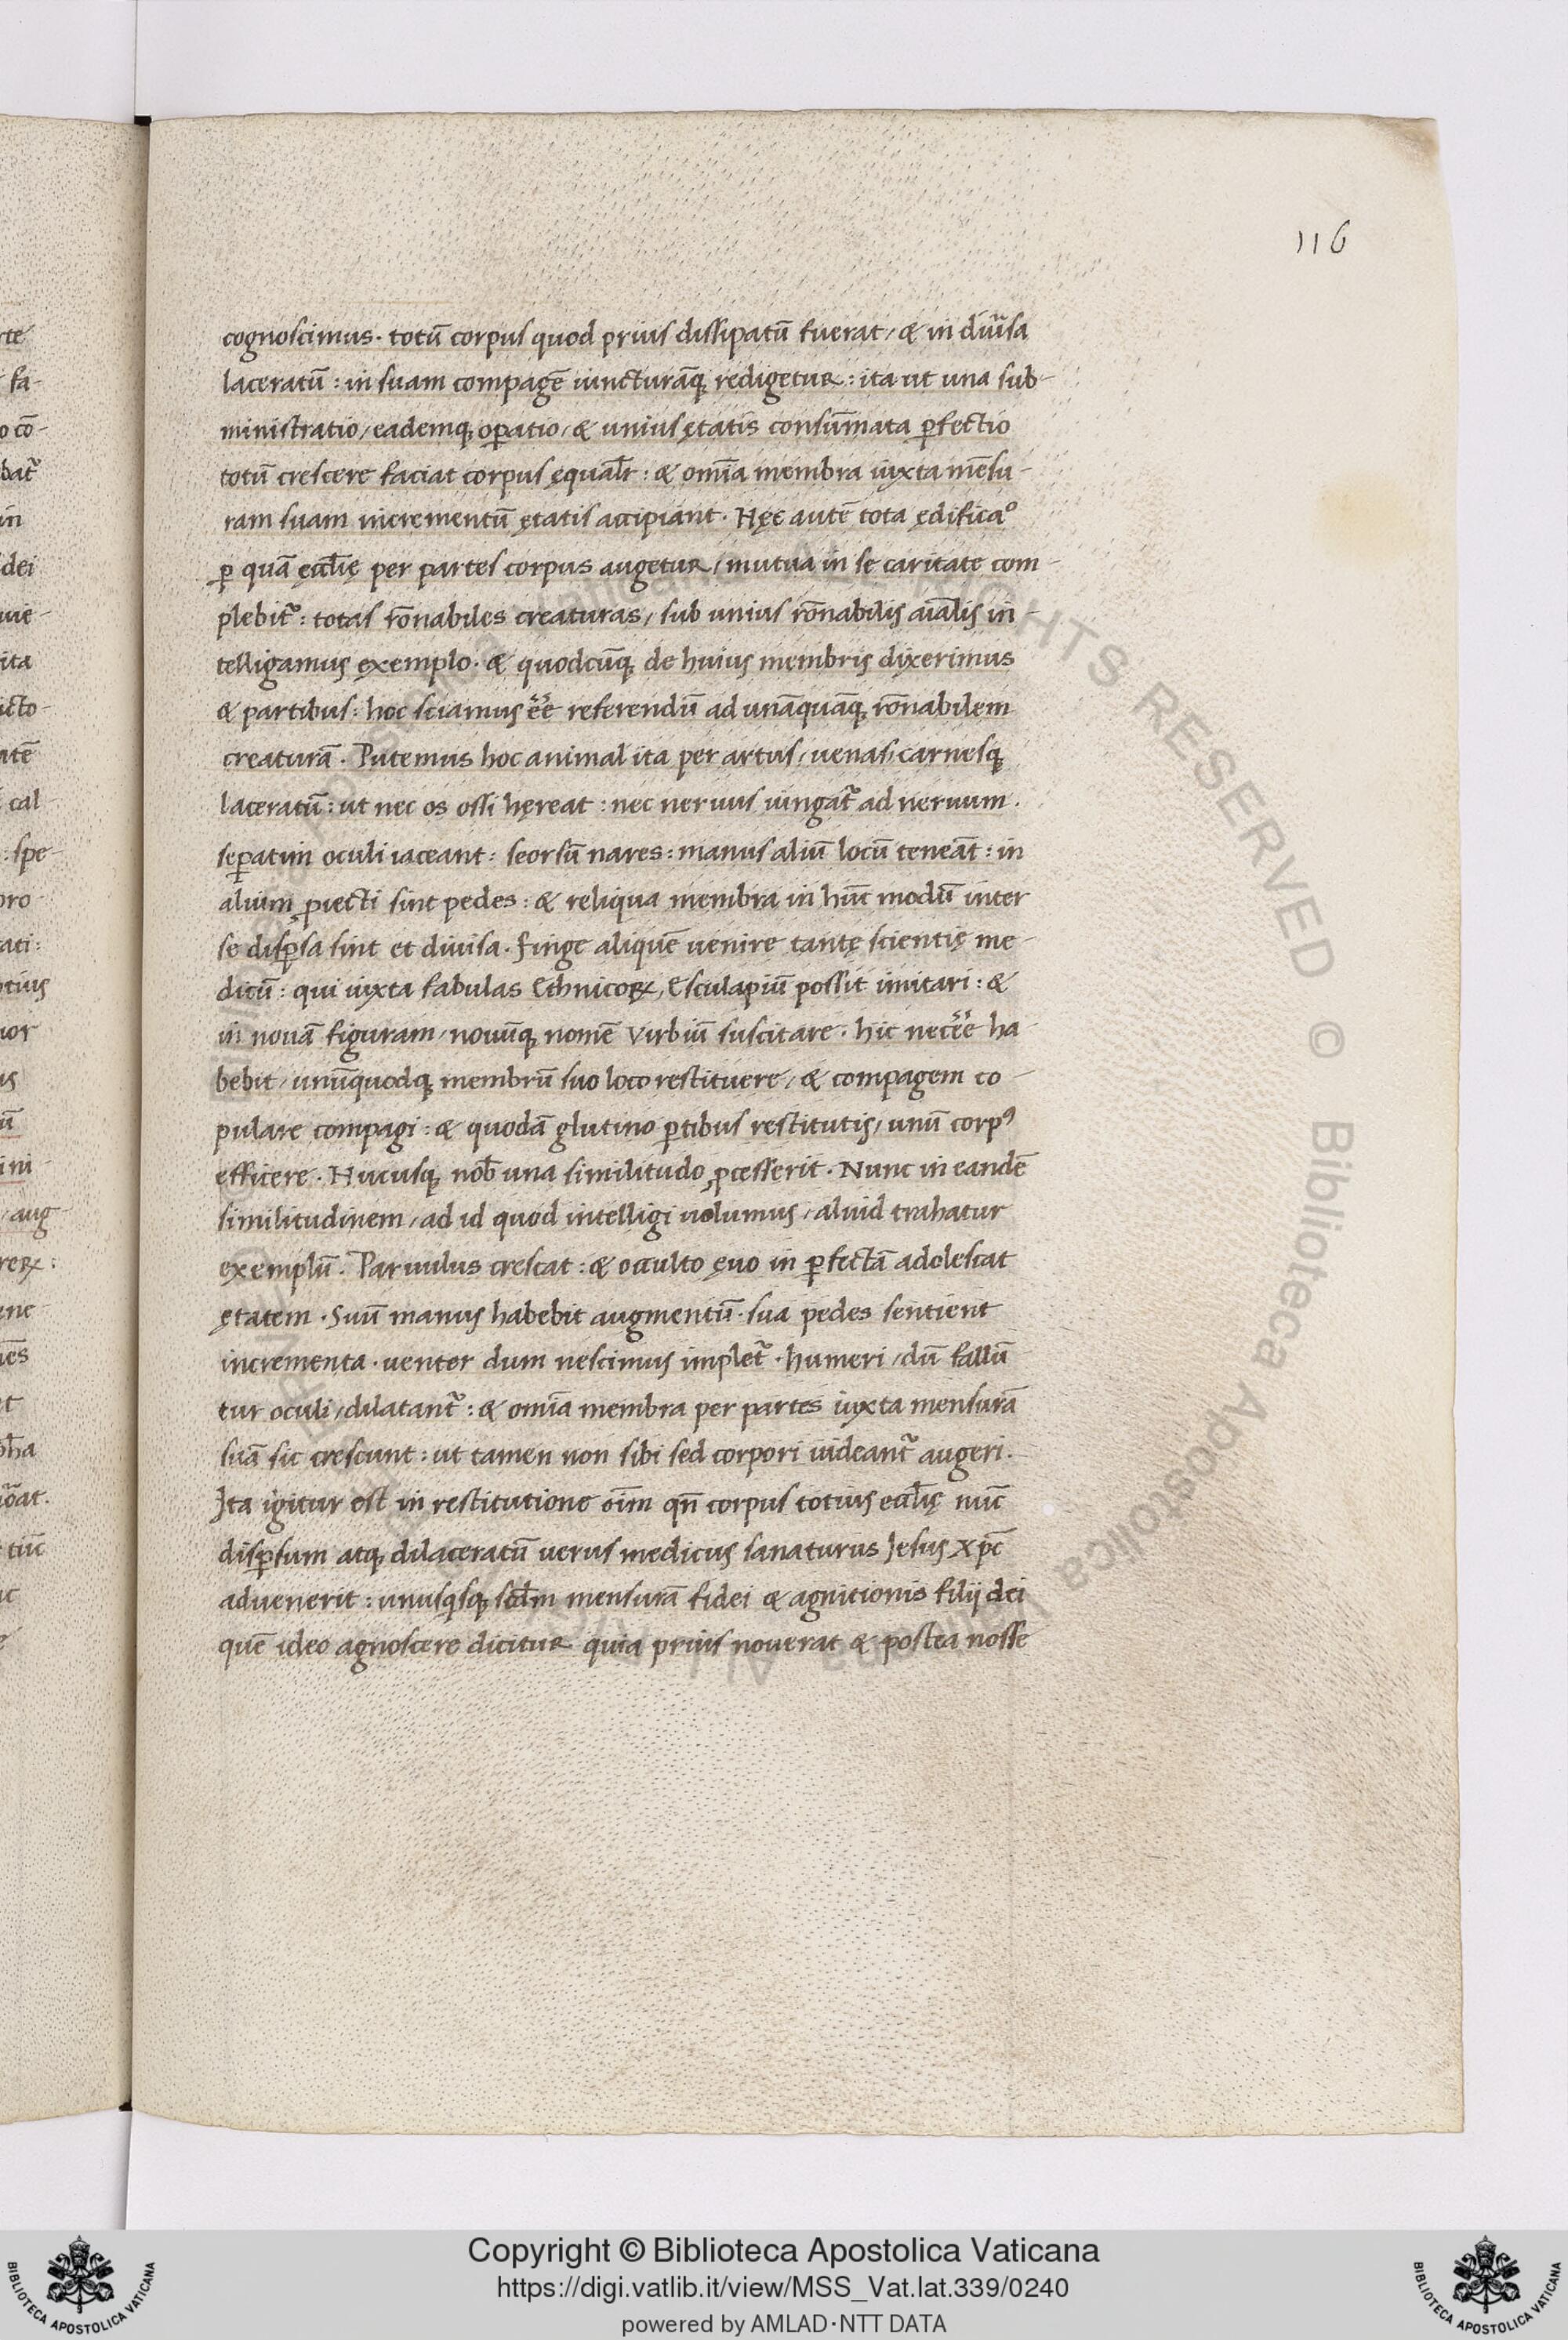 116
cognoscimus. totū corpus quod prius dissipatū fuerat, & in diũsa
laceratū: in suam compagē iuncturāq; redigetur: ita ut una sub-
ministratio, eademq; oꝑatio, & unius ętatis consūmata ꝑfectio
totū crescere faciat corpus ęqualr̄: & omīa membra iuxta mēsu-
ram suam incrementū ętatis accipiant. Hęc autē tota ędificaᵒ
ꝑ quā eccl̄ię per partes corpus augetur, mutua in se caritate com-
plebit᷑: totas rōnabiles creaturas, sub unius rōnabilis aīalis in-
telligamus exemplo. & quodcūq; de huius membris dixerimus
& partibus: hoc sciamus eē̄ referendū ad unāquāq; rōnabilem
creaturā. Putemus hoc animal ita per artus, uenas, carnesq;
laceratū: ut nec os ossi hęreat: nec neruus iungat᷑ ad neruum.
seꝑatim oculi iaceant: seorsū nares: manus aliū locū teneāt: in
alium ꝓiecti sint pedes: & reliqua membra in hūc modū inter
se disꝑsa sint et diuisa. Finge aliquē uenire tantę scientię me-
dicū: qui iuxta fabulas Ethnicoꝝ, Esculapiū possit imitari: &
in nouā figuram, nouūq; nomē Virbiū suscitare. hic neceē̄ ha-
bebit, unūquodq; membrū suo loco restituere, & compagem co-
pulare compagi: & quodā glutino ꝑtibus restitutis, unū corpꝰ
efficere. Hucusq; nob̄ una similitudo ꝓcesserit. Nunc in eandē
similitudinem, ad id quod intelligi uolumus, aliud trahatur
exemplū. Paruulus crescat: & occulto ęuo in ꝑfectā adolescat
ętatem. Suū manus habebit augmentū. sua pedes sentient
incrementa. uenter dum nescimus implet᷑. humeri, dū fallū
tur oculi, dilatant᷑: & omīa membra per partes iuxta mensurā
suā sic crescunt: ut tamen non sibi sed corpori uideant᷑ augeri.
Ita igitur est in restitutione oīm qn̄ corpus totius eccl̄ię nūc
disꝑsum atq; dilaceratū uerus medicus sanaturus Jesus xp̄c
aduenerit: unusq̇sq; scd̄m mensurā fidei & agnitionis filij dei
quē ideo agnoscere dicitur quia prius nouerat & postea nosse
Copyright © Biblioteca Apostolica Vaticana
https://digi.vatlib.it/view/MSS_Vat.lat.339/0240
powered by AMLAD·NTT DATA
BIBLIOTECA APOSTOLICA VATICANA
BIBLIOTECA APOSTOLICA VATICANA